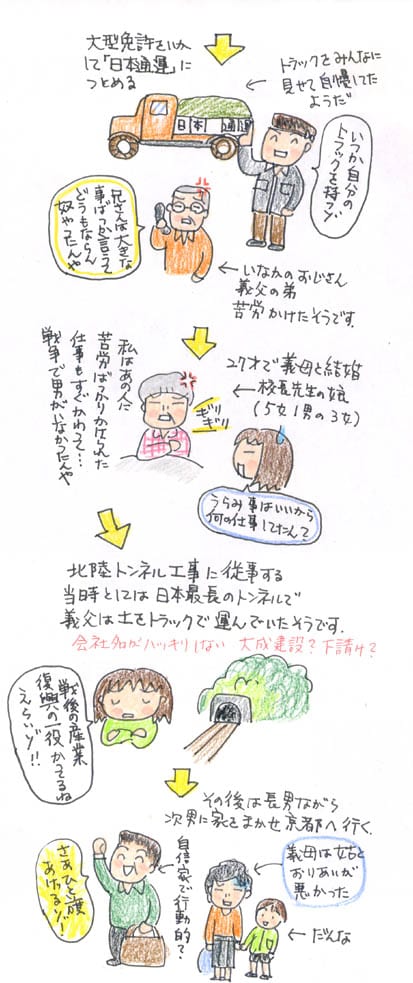 大型免許をいか
して「日本通運」に
つとめる
トラックをみんなに
見せて自慢してた
ようだ
日本通運
いつか自分の
トラックを持つゾ
兄さんは大きな
事ばっか言って
どうもならん
奴やったんや
いなかのおじさん
義父の弟
苦労かけたそうです.
27才で義母と結婚
校長先生の娘
(5女1男の3女)
私はあの人に
苦労ばっかりかけられた
仕事もすぐかわって…
戦争で男がいなかったんや
ギリ
ギリ
うらみ事はいいから
何の仕事してたんて
北陸トンネル工事に従事する
当時としては日本最長のトンネルで
義父は土をトラックで運んでいたそうです.
会社名がハッキリしない 大成建設?下請け?
戦後の産業
復興の一役かってるね
えらいゾ!!
その後は長男ながら
次男に家をまかせ京都へ行く.
さあひと旗
あげるゾ!
自信家で
行動的?
義母は姑と
おりあいが
悪かった
だんな